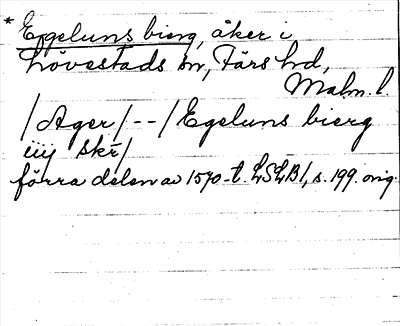 * Egeluns bierg, åker i
Lövestads sn, Färs hd,
Malm. l.
/Ager/--/Egeluns bierg
iiij skr/
förra delen av 1570-t. LSLB1, s. 199. orig.